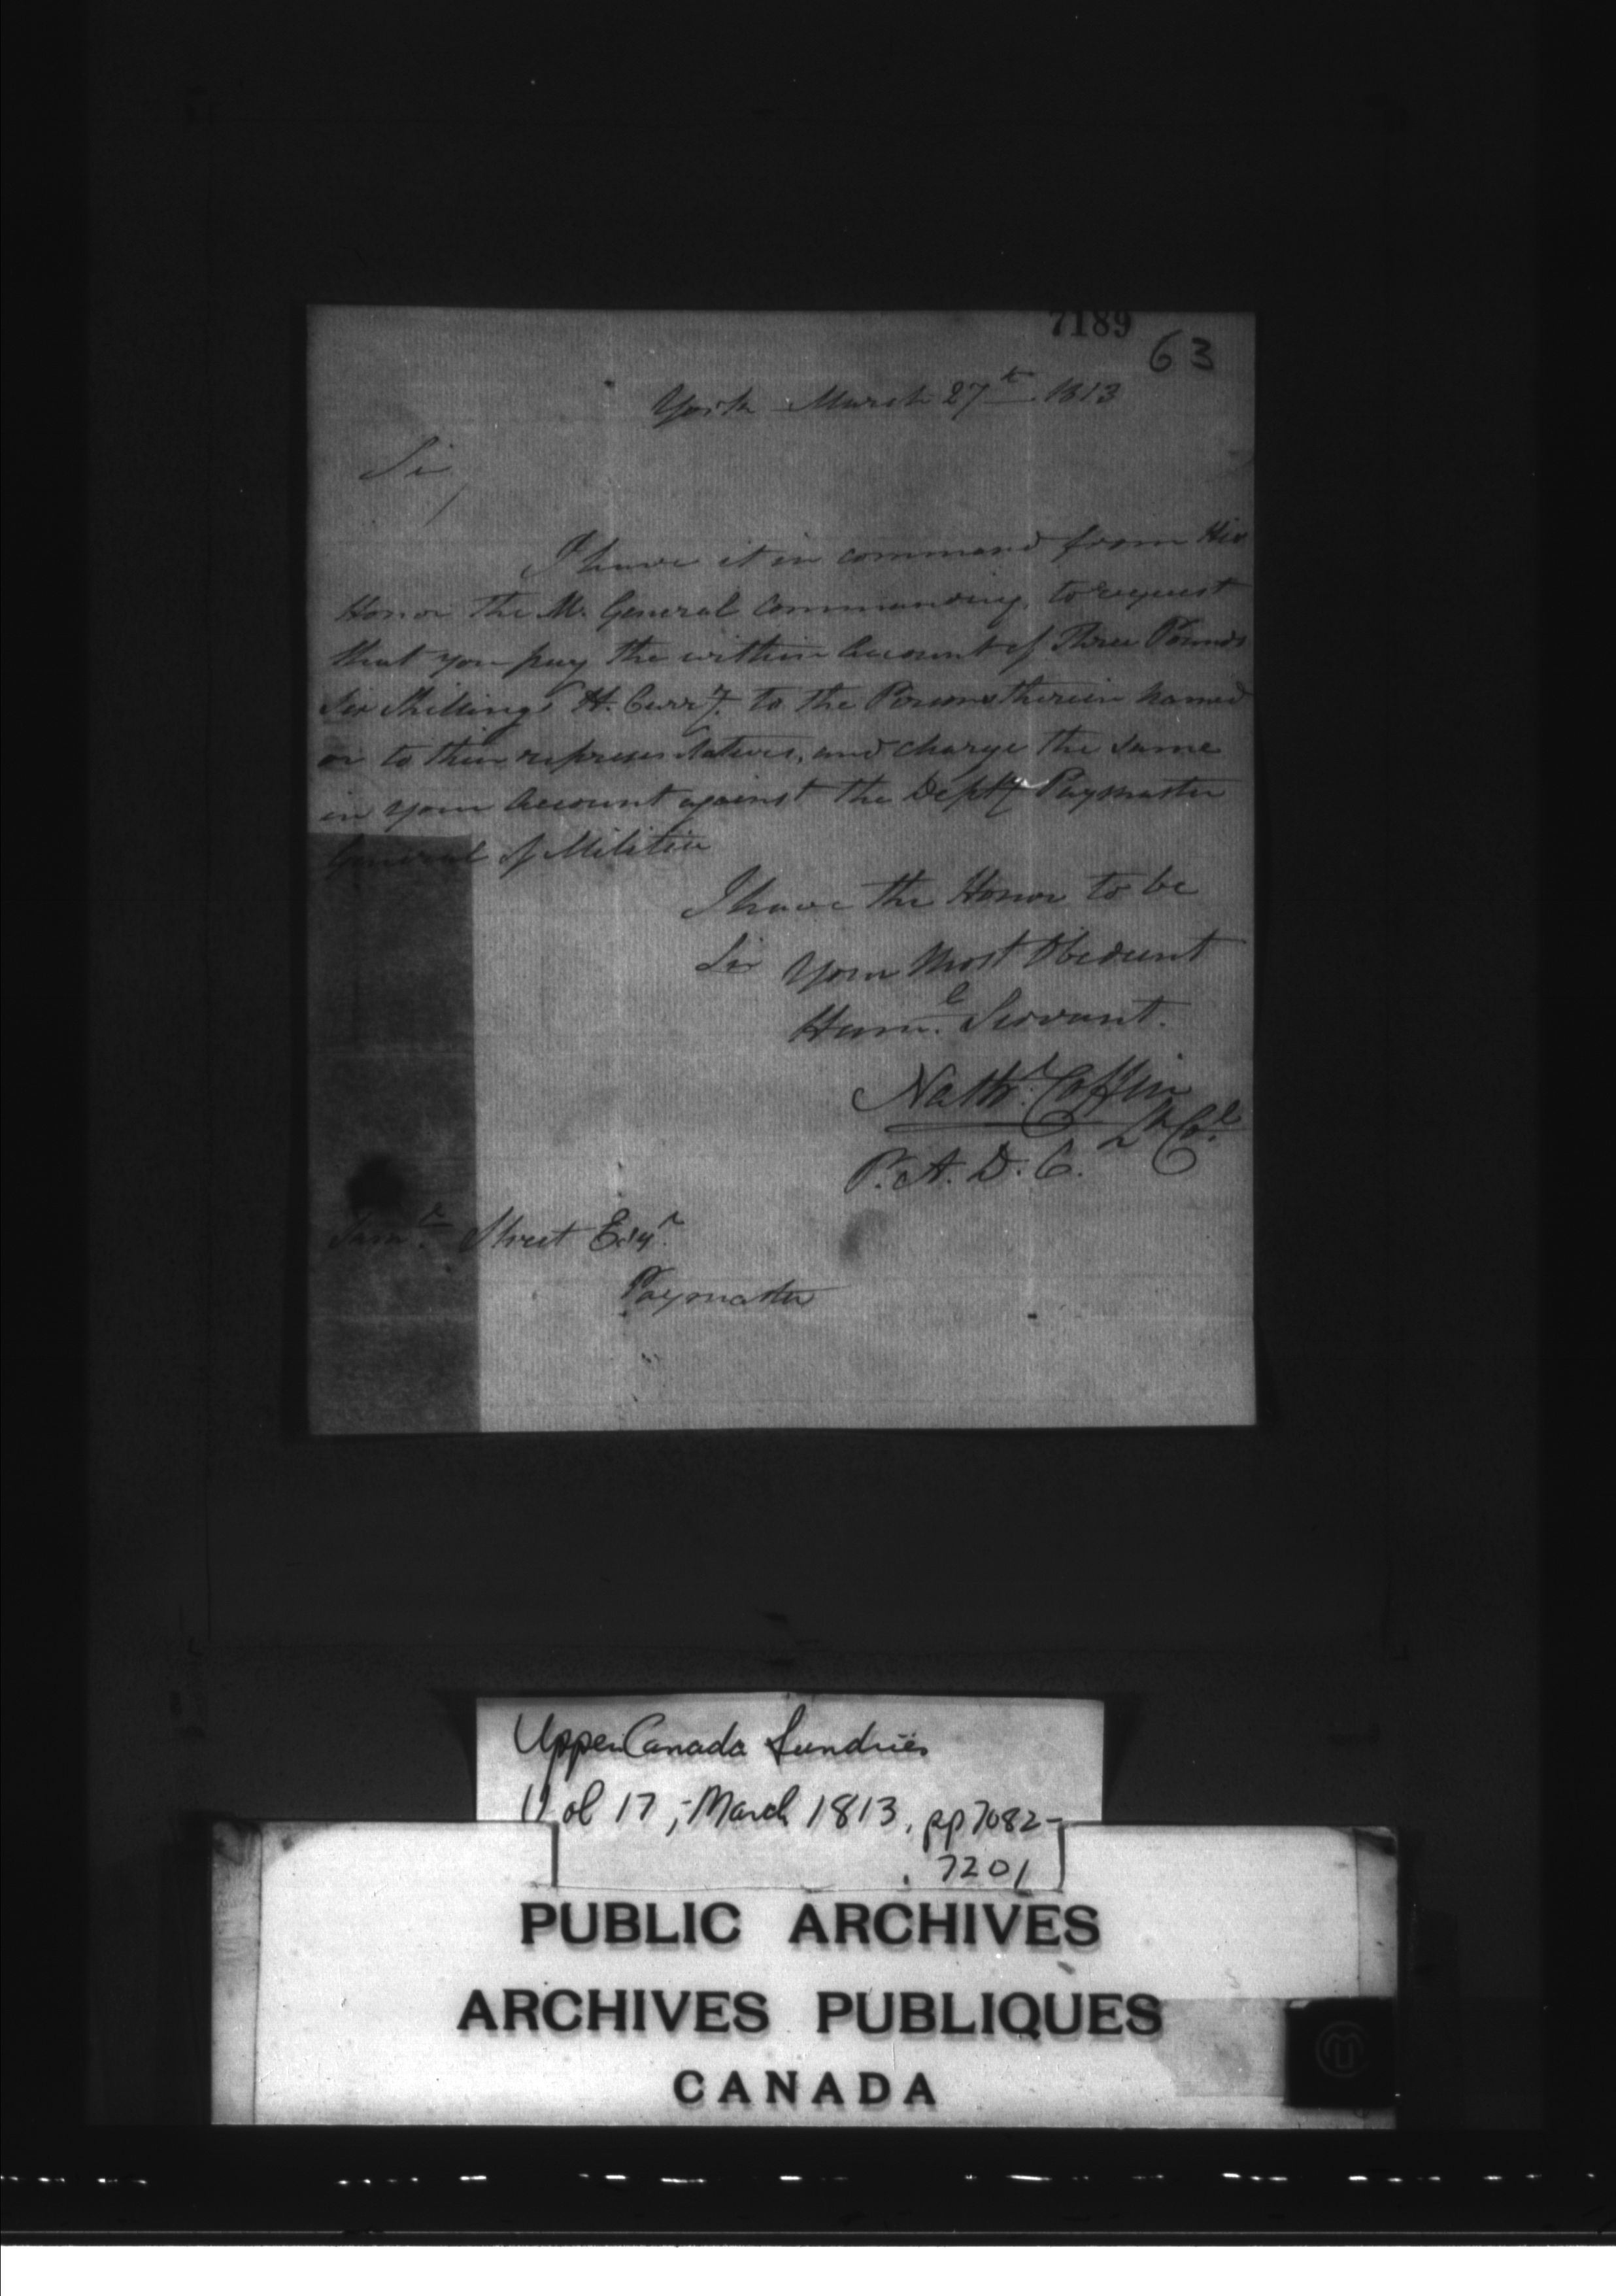 7189
63
York March 27th 1813
Sir
I have it in command from His
Honor the M. General Commanding, to request
that you pay the within Account of Three Pounds
Six Shillings H. Curry. to the Persons therein named
or to their representatives, and charge the same
in your Account against the Depty Paymaster
General of Militia
I have the Honor to be
Sir Your Most Obedient
Hume. Servant.
Nathl. Coffin
Lt Col
P. A. D. C.
Saml. Street Esqr.
Paymaster
Upper Canada Sundries
Vol 17, March 1813, pp 7082-
7201
PUBLIC ARCHIVES
ARCHIVES PUBLIQUES
CANADA